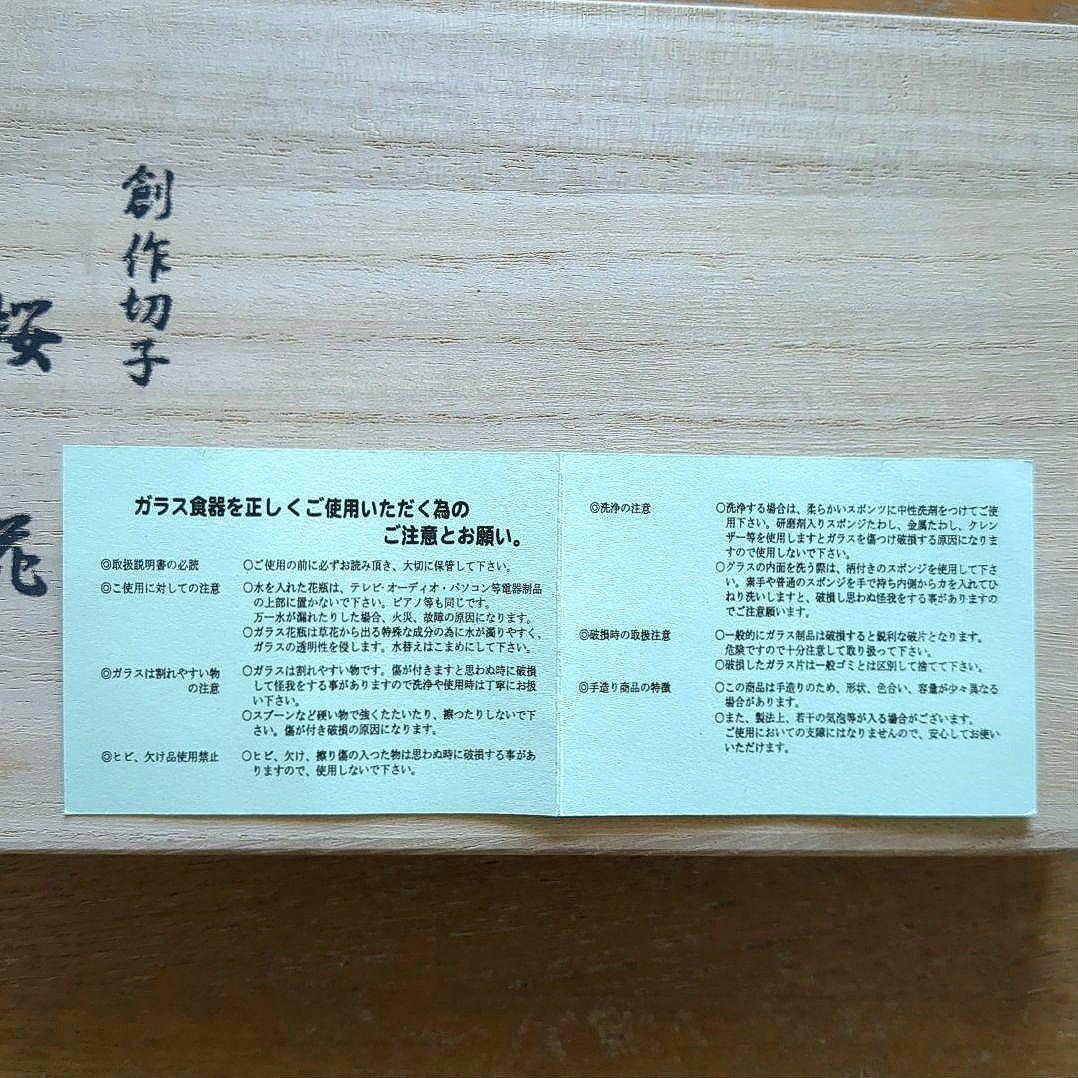 創作切子
桜花
ガラス食器を正しくご使用いただく為の
ご注意とお願い。
◎取扱説明書の必読
○ご使用の前に必ずお読み頂き、大切に保管して下さい。
◎こ使用に対しての注意
○水を入れた花瓶は、テレビ・オーディオ・パソコン等電器製品
の上部に置かないで下さい。ピアノ等も同じです。
万一水が漏れたりした場合、火災、故障の原因になります。
○ガラス花瓶は草花から出る特殊な成分の為に水が濁りやすく、
ガラスの透明性を侵します。水替えはこまめにして下さい。
◎ガラスは割れやすい物
の注意
○ガラスは割れやすい物です。傷が付きますと思わぬ時に破損
して怪我をする事がありますので洗浄や使用時は丁寧にお扱
い下さい。
○スプーンなど硬い物で強くたたいたり、擦つたりしないで下
さい。傷が付き破損の原因になります。
◎ヒビ、欠け品使用禁止
○ヒビ、欠け、擦り傷の入つた物は思わぬ時に破損する事があ
りますので、使用しないで下さい。
◎洗浄の注意
○洗浄する場合は、柔らかいスポンツに中性洗剤をつけてご使
用下さい。研磨剤入りスポンジたわし、金属たわし、クレン
ザー等を使用しますとガラスを傷つけ破損する原因になりま
すので使用しないで下さい。
○グラスの内面を洗う際は、柄付きのスポンジを使用して下さ
い。素手や普通のスポンジを手で持ち内側から力を入れてひ
ねり洗いしますと、破損し思わぬ怪我をする事がありますの
でご注意願います。
◎破損時の取扱注意
○一般的にガラス製品は破損すると鋭利な破片となります。
危険ですので十分注意して取り扱って下さい。
○破損したガラス片は一般ゴミとは区別して捨てて下さい。
◎手造り商品の特徴
○この商品は手造りのため、形状、色合い、容量が少々異なる
場合があります。
○また、製法上、若干の気泡等が入る場合がございます。
ご使用においての支障にはなりませんので、安心してお使い
いただけます。